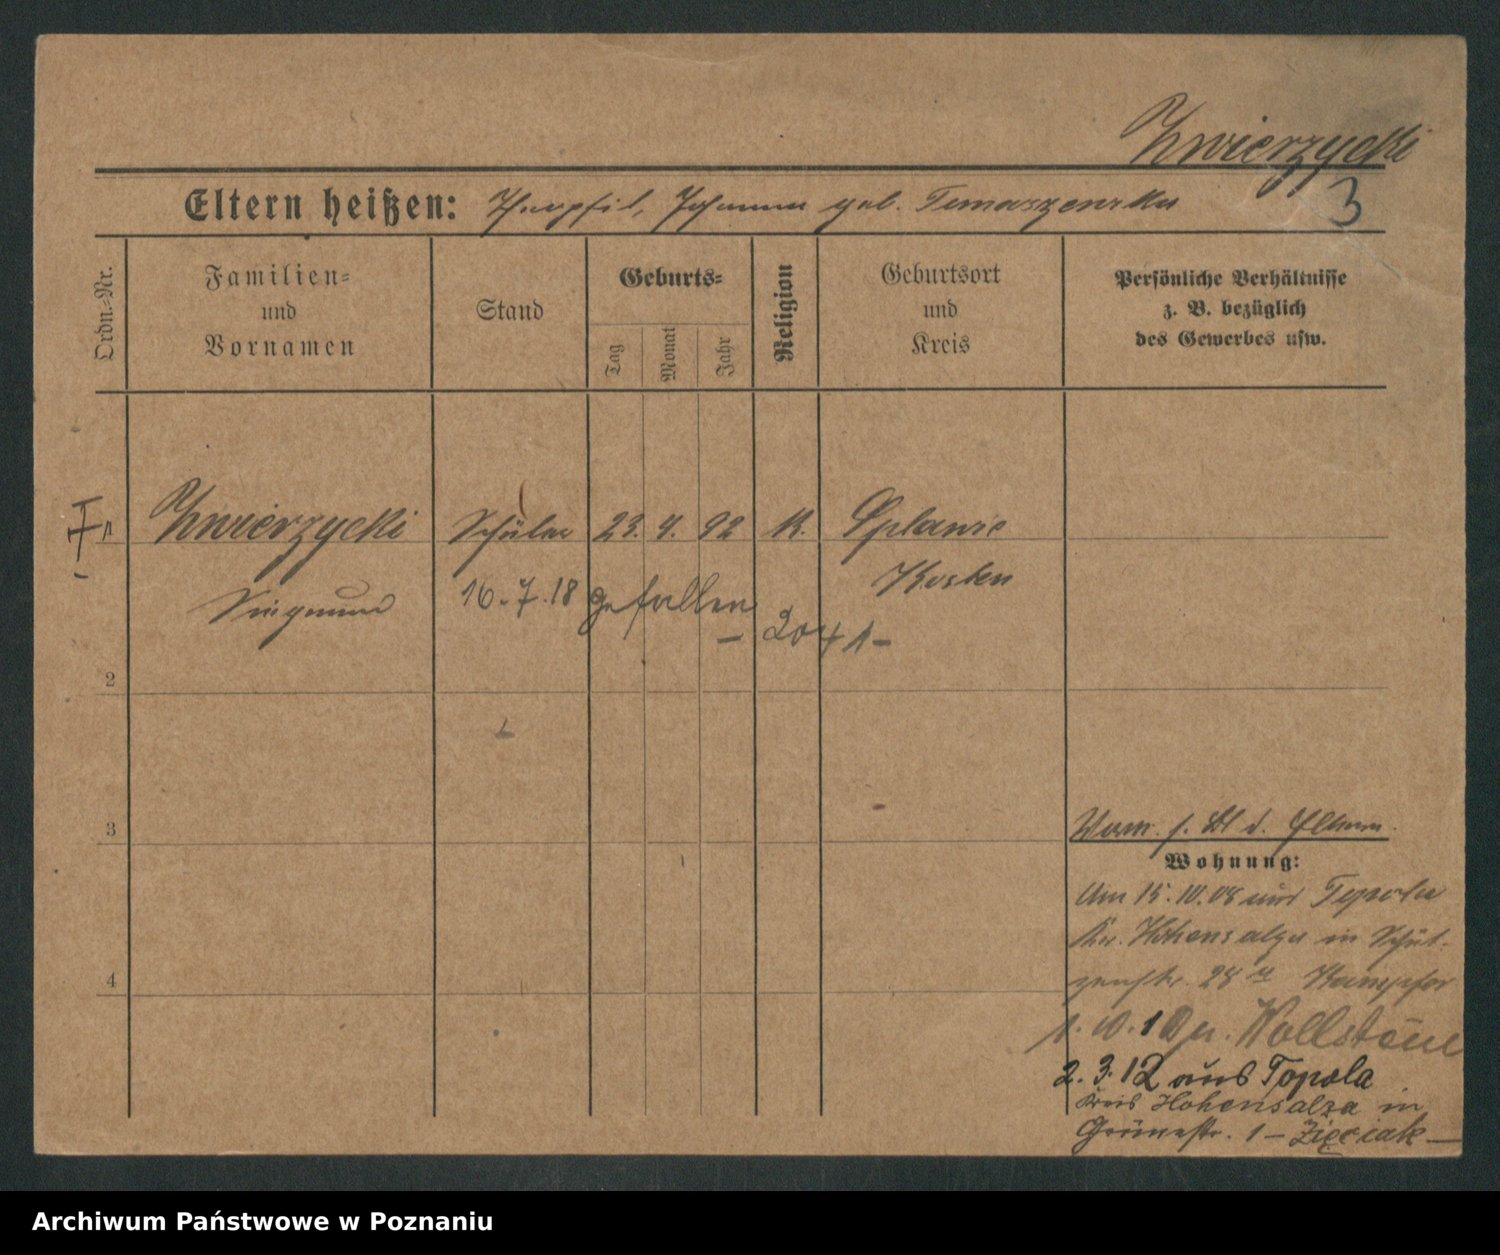 Zwierzycki
3
Eltern heißen: Theophil, Johanna geb. Tomaszewska
Ordn.-Nr.
Familien-
und
Vornamen
Stand
Geburts-
Tag
Monat
Jahr
Religion
Geburtsort
und
Kreis
Persönliche Verhältnisse
z. B. bezüglich
des Gewerbes usw.
1 Zwierzycki Schüler 23. 4. 92 K. Spławie
Siegmund Kosten
16.7.18 gefallen
- 2041 -
2
3
4
d. Eltern
Wohnung:
Am 15.10.08 aus Topola
Kr. Hohensalza in Schüt-
zenstr. 28 Kempfer
1. 10. Wollstein
2. 3. 12 aus Topola
Kreis Hohensalza in
Grünestr. 1 - Zięciak -
Archiwum Państwowe w Poznaniu